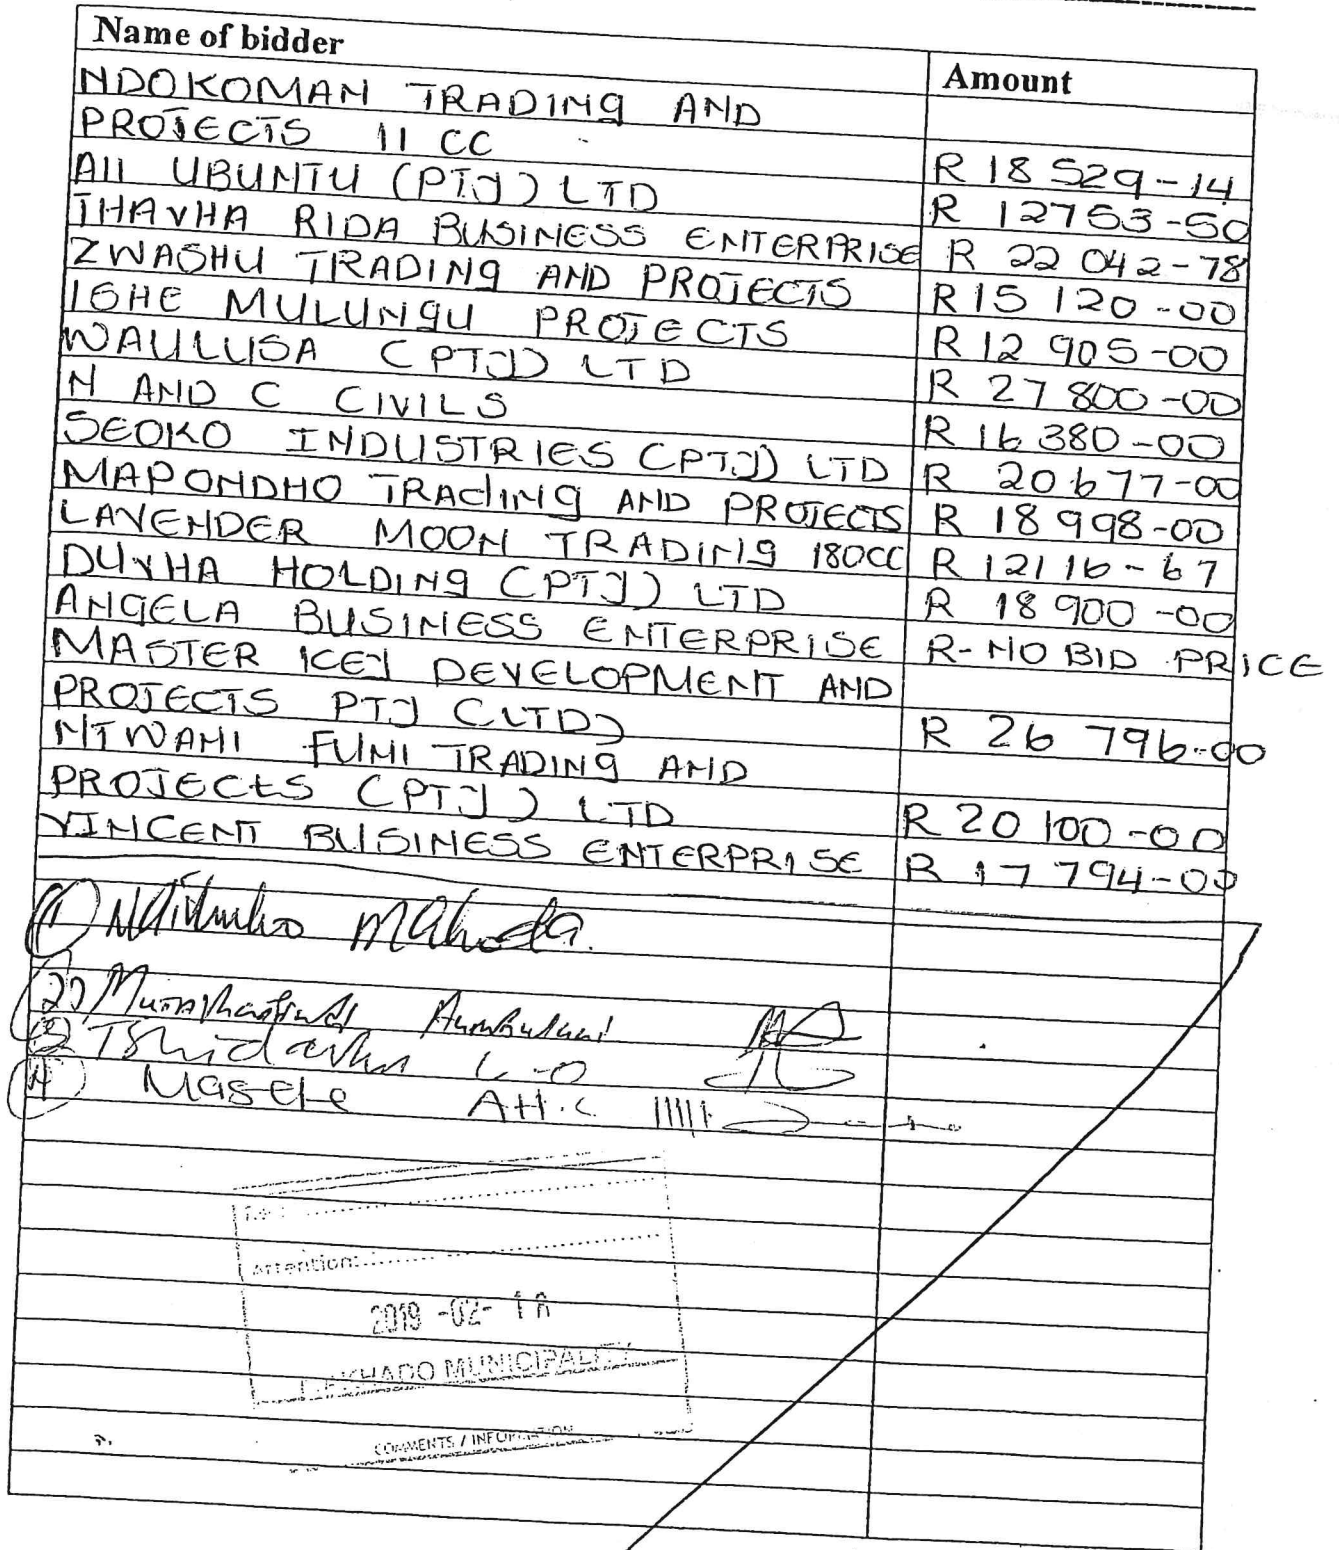 Name of bidder Amount
NDOKOMAN TRADING AND
PROJECTS 11 CC R 18 529-14
All UBUNTU (PTY) LTD R 12753-50
THAVHA RIDA BUSINESS ENTERPRISE R 22 042-78
ZWASHU TRADING AND PROJECTS R15 120-00
ISHE MULUNGU PROJECTS R12 905-00
WAULUSA (PTY) LTD R 27 800-00
N AND C CIVILS R 16 380-00
SEOKO INDUSTRIES (PTY) LTD R 20677-00
MAPONDHO TRAdiNG AND PROJECTS R 18 998-00
LAVENDER MOON TRADING 180CC R 12116-67
DUVHA HOLDING (PTY) LTD R 18 900-00
ANGELA BUSINESS ENTERPRISE R-NO BID PRICE
MASTER KEY DEVELOPMENT AND
PROJECTS PTY (LTD) R 26 796-00
NTWANI FUNI TRADING AND
PROJECtS (PTY) LTD R 20 100-00
VINCENT BUSINESS ENTERPRISE R 17 794-00
(1)
(2)
(3)
(4) Masele
Attention:
2019 -02-
MAKHADO MUNICIPALITY
COMMENTS / INFORMATION